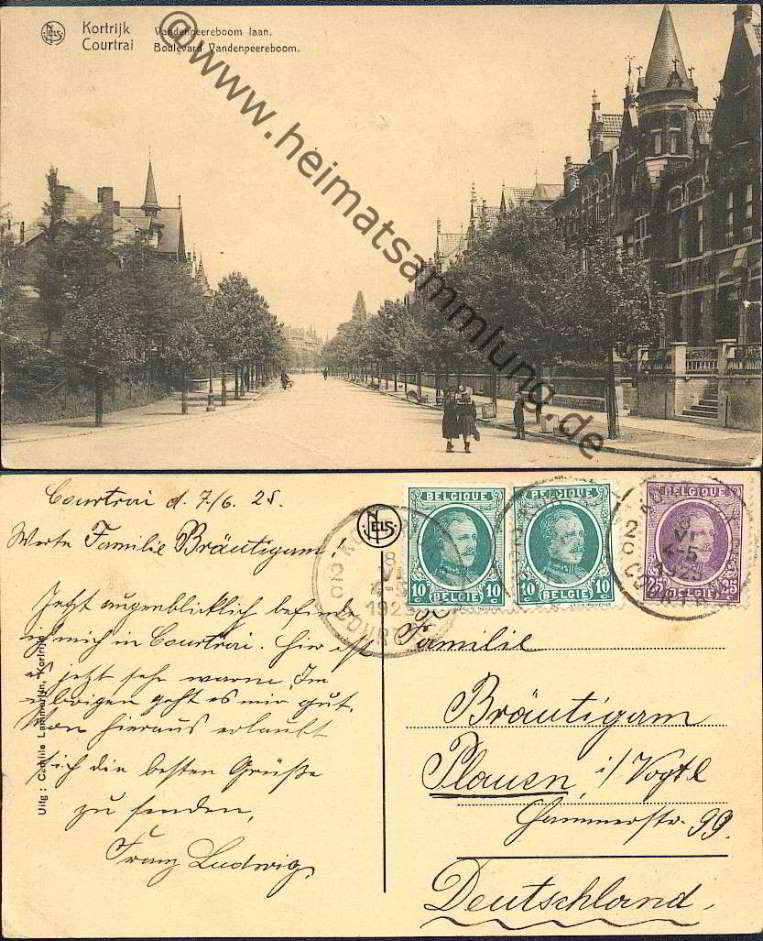 NELS
Kortrijk
Courtrai
Vandenpeereboom laan.
Boulevard Vandenpeereboom.
@www.heimatsammlung.de
Courtrai d. 7/6. 25.
Werte Familie Bräutigam!
Jetzt augenblicklich befinde
ich mich in Courtrai. Hier ist
es jetzt sehr warm. Im
übrigen geht es mir gut.
Von hieraus erlaubt
sich die besten Grüße
zu senden,
Franz Ludwig.
Uitg: Camille Lammertijn, Kortrijk
NELS
BELGIQUE
10 10
BELGIE
BELGIQUE
10 10
BELGIE
BELGIQUE
25 25
BELGIE
8
VI
4-5
1925
COURTRAI
VI
4-5
1925
Familie
Bräutigam
Plauen, i/Vogtl
Hammerstr. 99.
Deutschland.